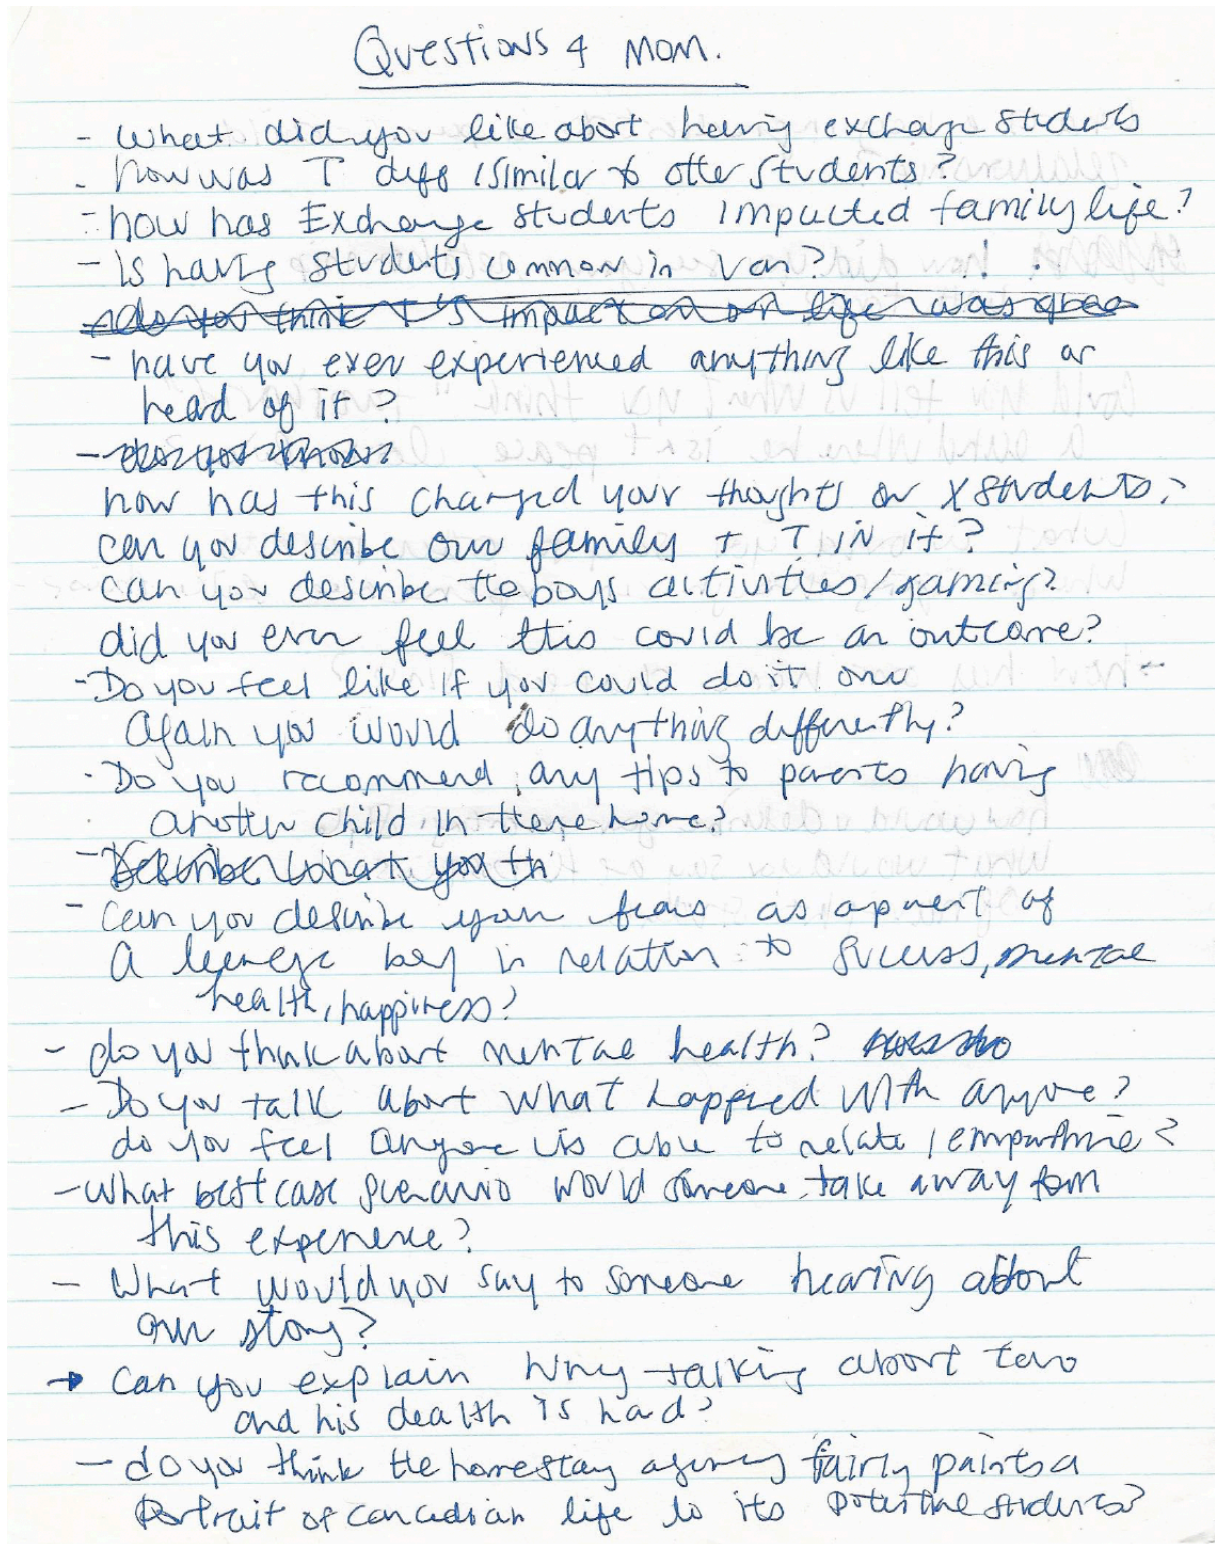 Questions 4 Mom.
- What did you like abort having exchange students
- how was T diff / similar to other students?
- how has Exchange students impacted family life?
- Is having students common in Van?
- do you think T's impact on our life was
- have you ever experienced anything like this or
heard of it?
- do you know
how has this changed your thoughts on X students?
can you describe our family + T in it?
can you describe the boys activities/gaming?
did you ever feel this could be an outcome?
- Do you feel like if you could do it over
again you would do anything differently?
- Do you recommend any tips to parents having
another child in there home?
- Describe what you th
- can you describe your fears as a parent of
a teenage boy in relation to success, mental
health, happiness?
- do you think abort mental health?
- Do you talk abort what happened with anyone?
do you feel anyone is able to relate / empathize?
- What best case scenario would someone take away from
this experience?
- What would you say to someone hearing about
our story?
→ Can you explain Why talking about taro
and his dealth is hard?
- do you think the homestay agency fairly paints a
Portrait of canadian life to its potential students?